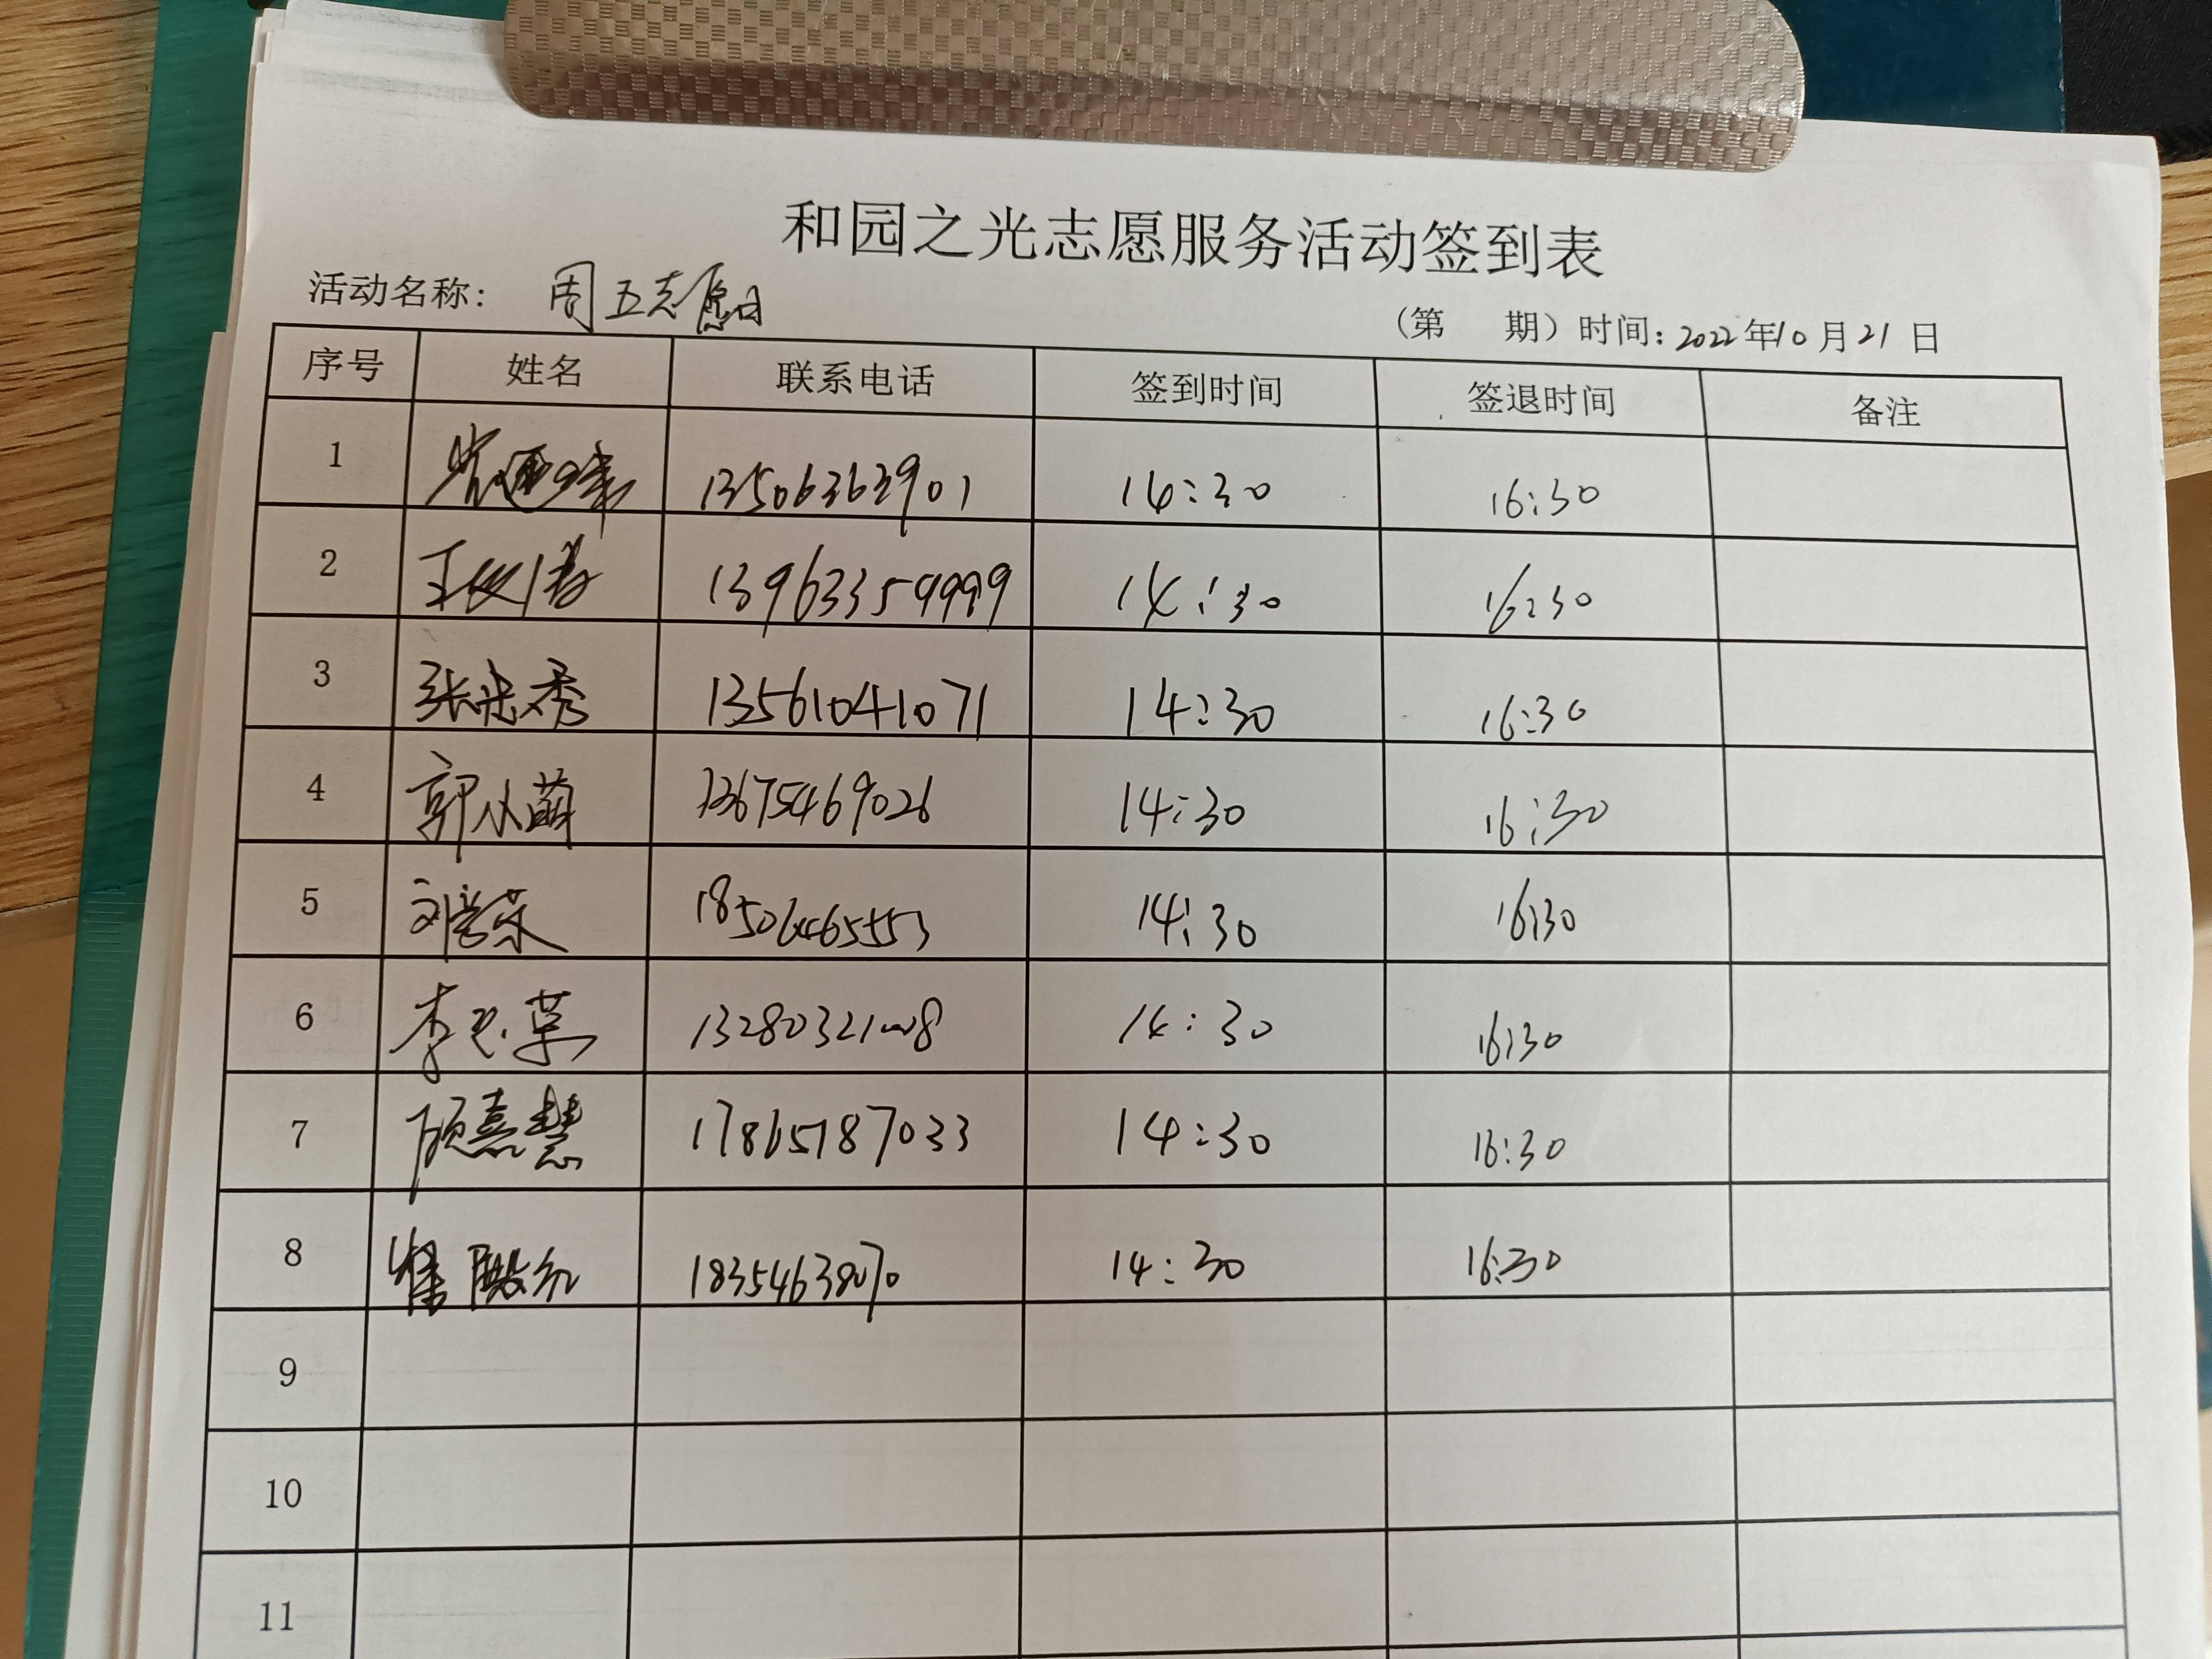 和园之光志愿服务活动签到表
活动名称: 周五志愿日
(第 期) 时间: 2022年10月21日
序号 姓名 联系电话 签到时间 签退时间 备注
1 13506363901 14:30 16:30
2 13963359999 14:30 16:30
3 张 秀 13561041071 14:30 16:30
4 郭小萌 13675469026 14:30 16:30
5 刘 荣 18506465553 14:30 16:30
6 李 草 14:30 16:30
7 顾熹慧 17865187033 14:30 16:30
8 崔 14:30 16:30
9
10
11